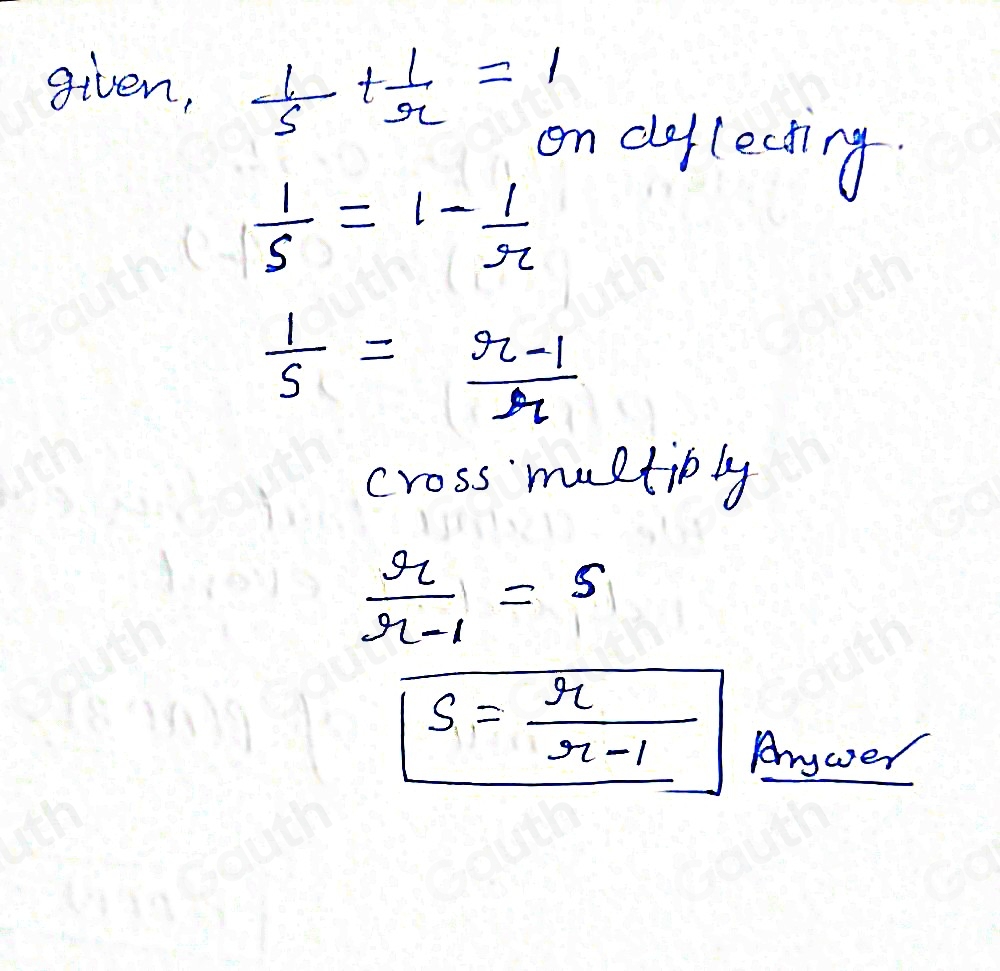 given, 1/s + 1/r = 1
on deflecting.
1/s = 1 - 1/r
1/s = r-1/r
cross multiply
r/r-1 = s
s = r/r-1 Answer